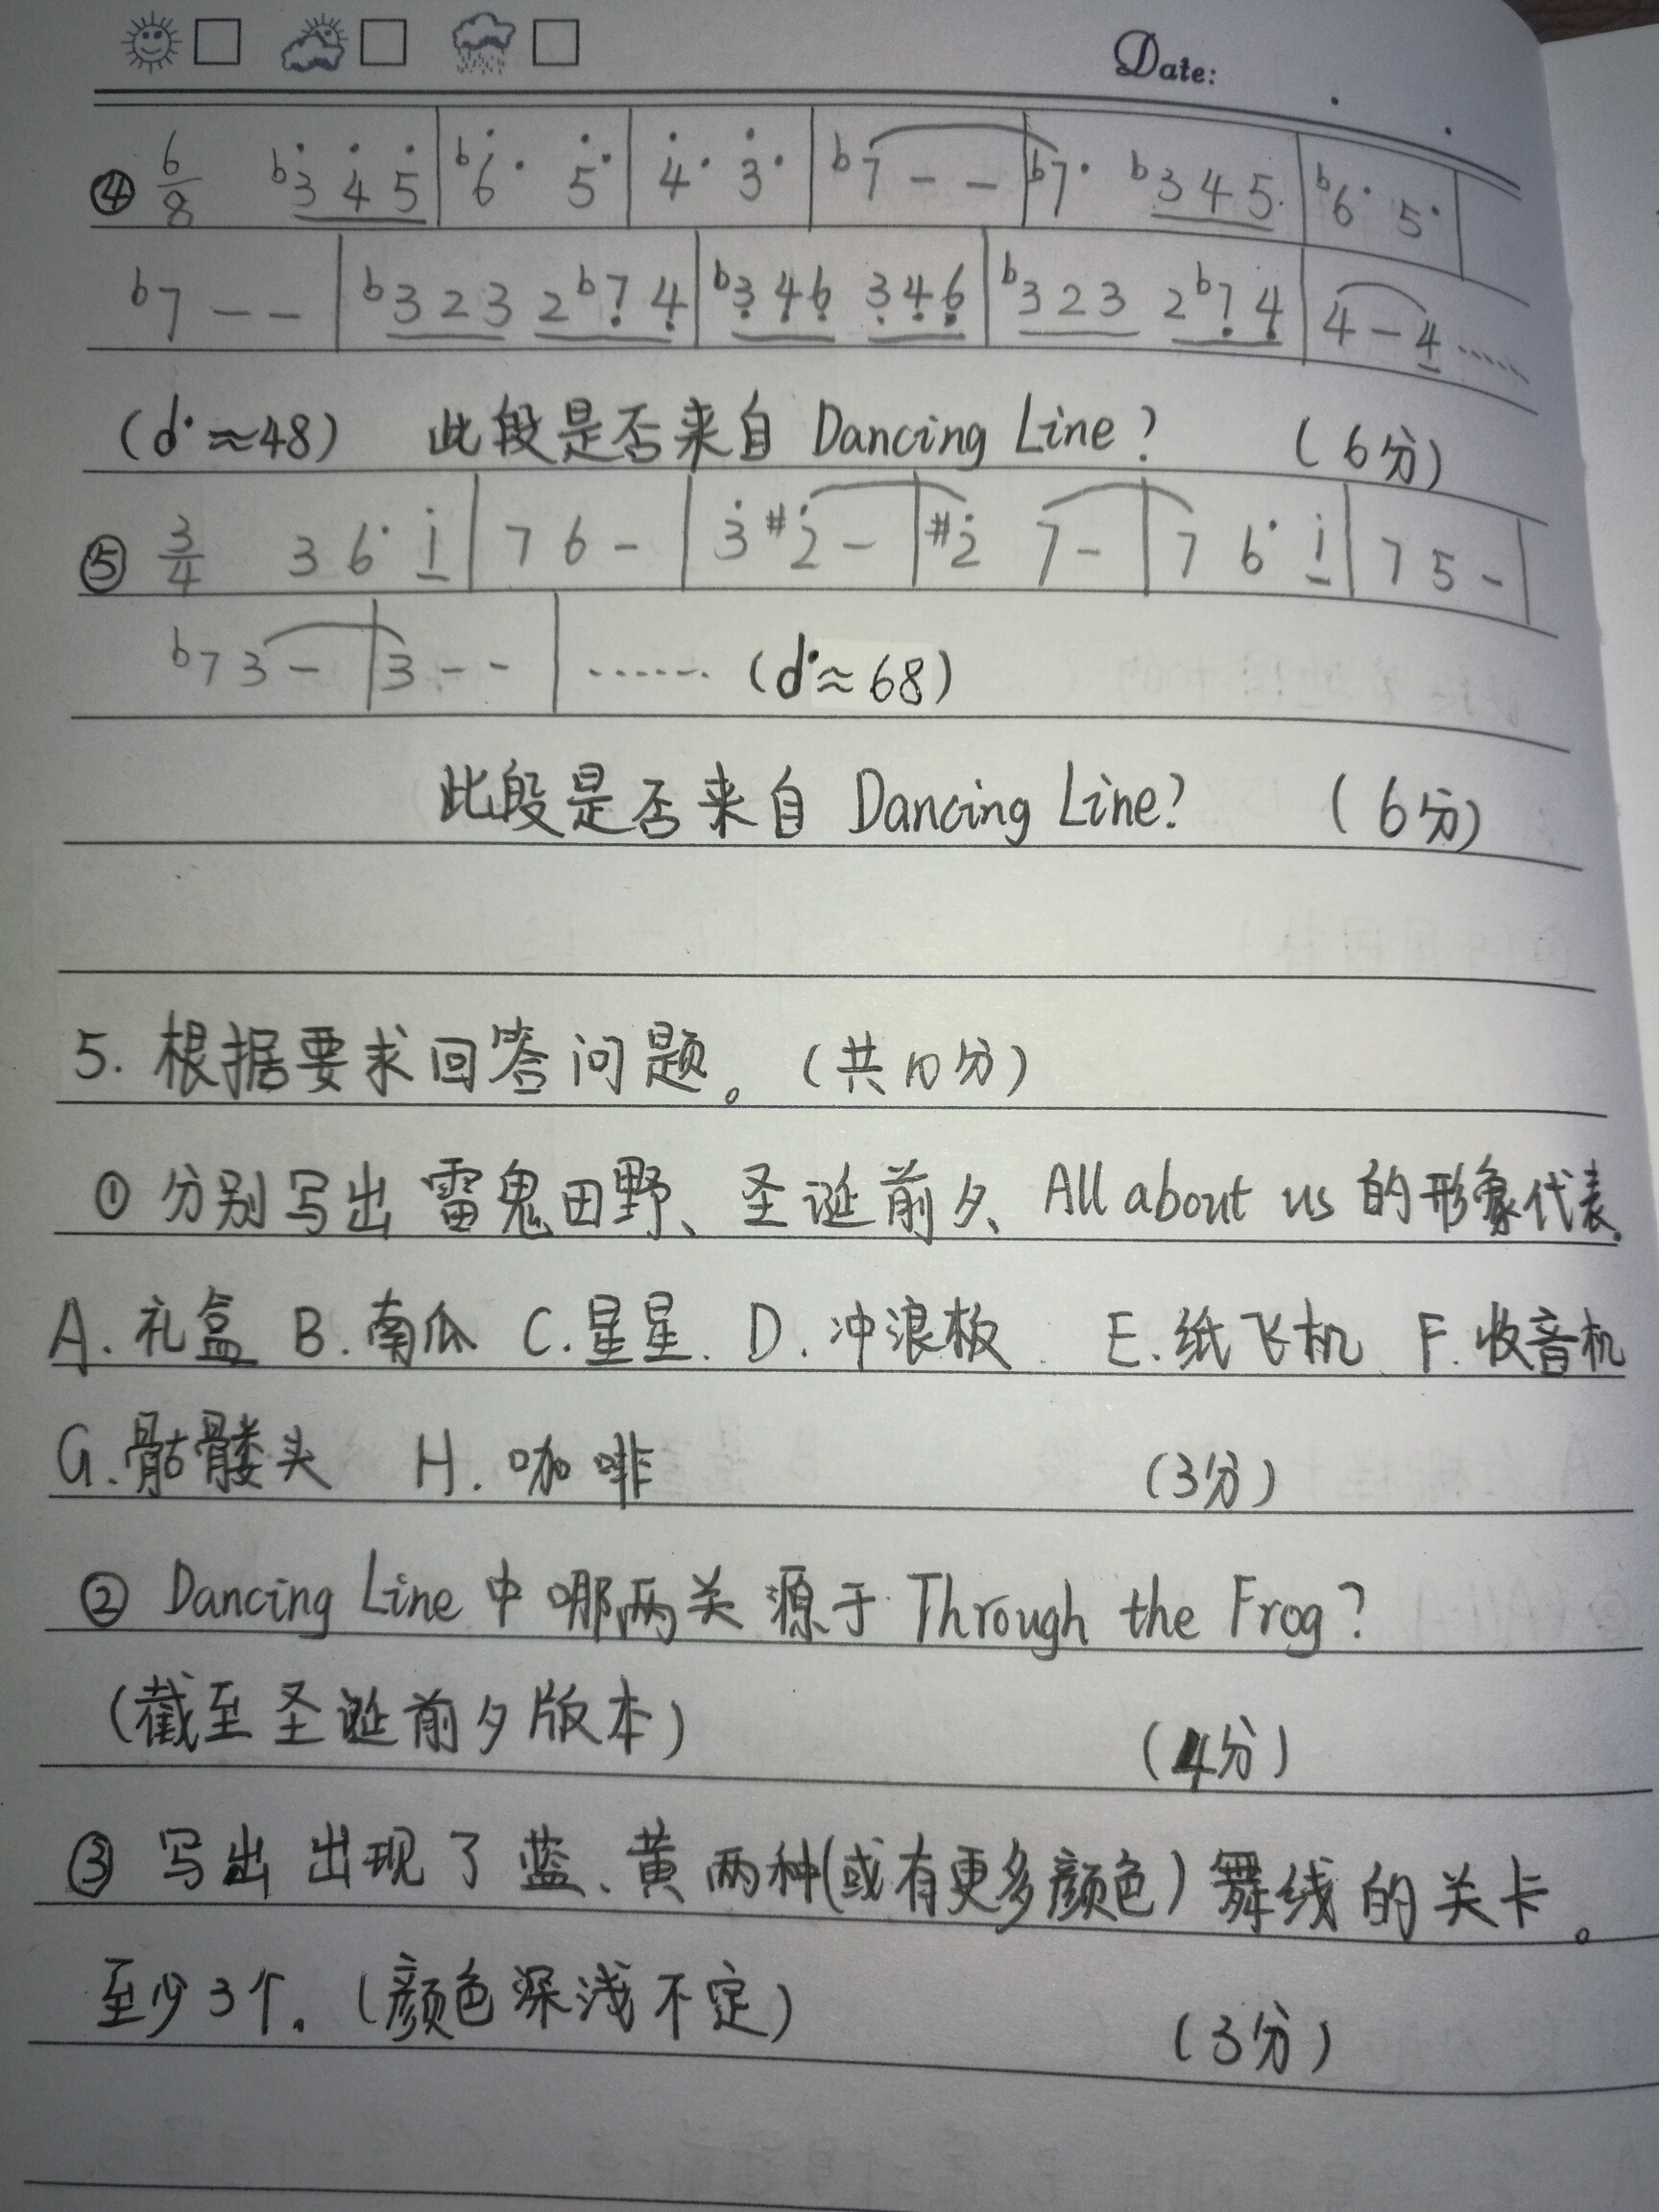 Date:
④ 6/8 b3̇ 4̇ 5̇ | b6̇· 5̇· | 4̇· 3̇· | b7 – – | b7· b3 4 5 | b6· 5· |
b7 – – | b3 2 3 2 b7̣ 4̣ | b3̣ 4̣ 6̣ 3̣ 4̣ 6̣ | b3 2 3 2 b7̣ 4̣ | 4 – 4 ……
(d·≈48) 此段是否来自 Dancing Line? (6分)
⑤ 3/4 3 6· i̇ | 7 6 – | 3̇ #2̇ – | #2̇ 7 – | 7 6· i̇ | 7 5 – |
b7 3 – | 3 – – | …… (d·≈68)
此段是否来自 Dancing Line? (6分)
5. 根据要求回答问题。(共10分)
① 分别写出 雷鬼田野、圣诞前夕、All about us 的形象代表.
A. 礼盒 B. 南瓜 C. 星星. D. 冲浪板 E. 纸飞机 F. 收音机
G. 骷髅头 H. 咖啡 (3分)
② Dancing Line 中哪两关 源于 Through the Frog?
(截至圣诞前夕版本) (4分)
③ 写出 出现了 蓝、黄两种(或有更多颜色) 舞线的关卡。
至少3个. (颜色深浅不定) (3分)